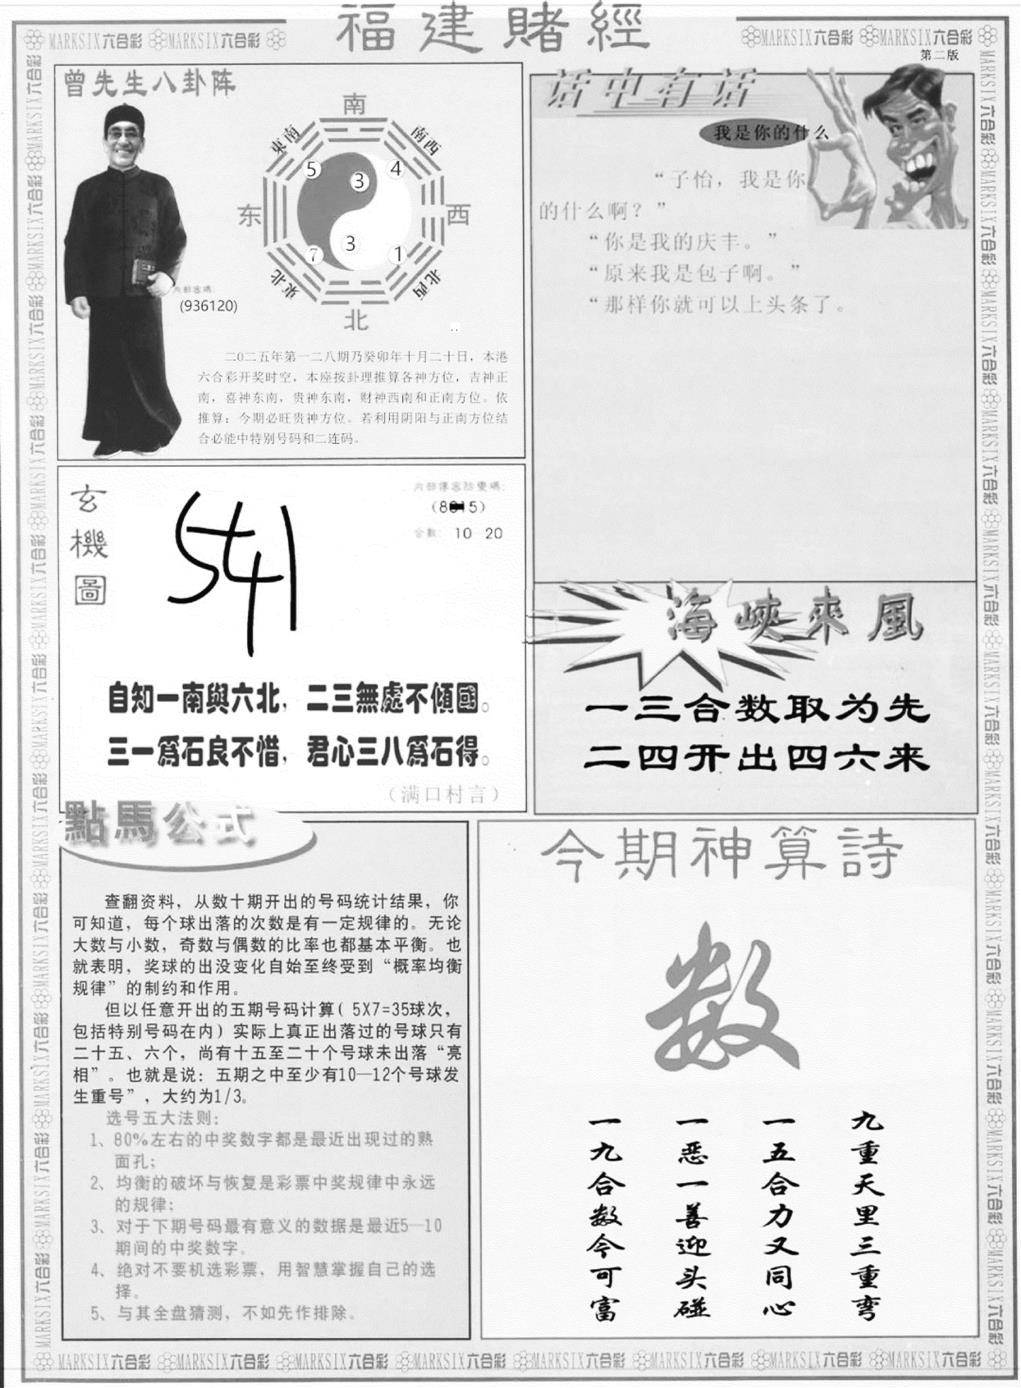 福建賭經
MARKSIX六合彩 MARKSIX六合彩
MARKSIX六合彩 MARKSIX六合彩
第二版
曾先生八卦阵
南
東南
南西
5
3
4
东
西
7
3
1
東北
北西
北
内部密碼:
(936120)
二0二五年第一二八期乃癸卯年十月二十日，本港
六合彩开奖时空，本座按卦理推算各神方位，吉神正
南，喜神东南，贵神东南，财神西南和正南方位。依
推算：今期必旺贵神方位。若利用阴阳与正南方位结
合必能中特别号码和二连码。
话中有话
我是你的什么
“子怡，我是你
的什么啊？”
“你是我的庆丰。”
“原来我是包子啊。”
“那样你就可以上头条了。
玄機圖
541
合数: 10 20
自知一南與六北，二三無處不傾國。
三一爲石良不惜，君心三八爲石得。
（满口村言）
海峽來風
一三合数取为先
二四开出四六来
點馬公式
查翻资料，从数十期开出的号码统计结果，你
可知道，每个球出落的次数是有一定规律的。无论
大数与小数，奇数与偶数的比率也都基本平衡。也
就表明，奖球的出没变化自始至终受到“概率均衡
规律”的制约和作用。
但以任意开出的五期号码计算( 5X7=35球次，
包括特别号码在内) 实际上真正出落过的号球只有
二十五、六个，尚有十五至二十个号球未出落“亮
相”。也就是说: 五期之中至少有10—12个号球发
生重号”，大约为1/3。
选号五大法则:
1、80%左右的中奖数字都是最近出现过的熟
面孔;
2、均衡的破坏与恢复是彩票中奖规律中永远
的规律;
3、对于下期号码最有意义的数据是最近5—10
期间的中奖数字。
4、绝对不要机选彩票，用智慧掌握自己的选
择。
5、与其全盘猜测，不如先作排除。
今期神算詩
数
九重天里三重弯
一五合力又同心
一恶一善迎头碰
一九合数今可富
MARKSIX六合彩 MARKSIX六合彩 MARKSIX六合彩 MARKSIX六合彩 MARKSIX六合彩 MARKSIX六合彩 MARKSIX六合彩 MARKSIX六合彩